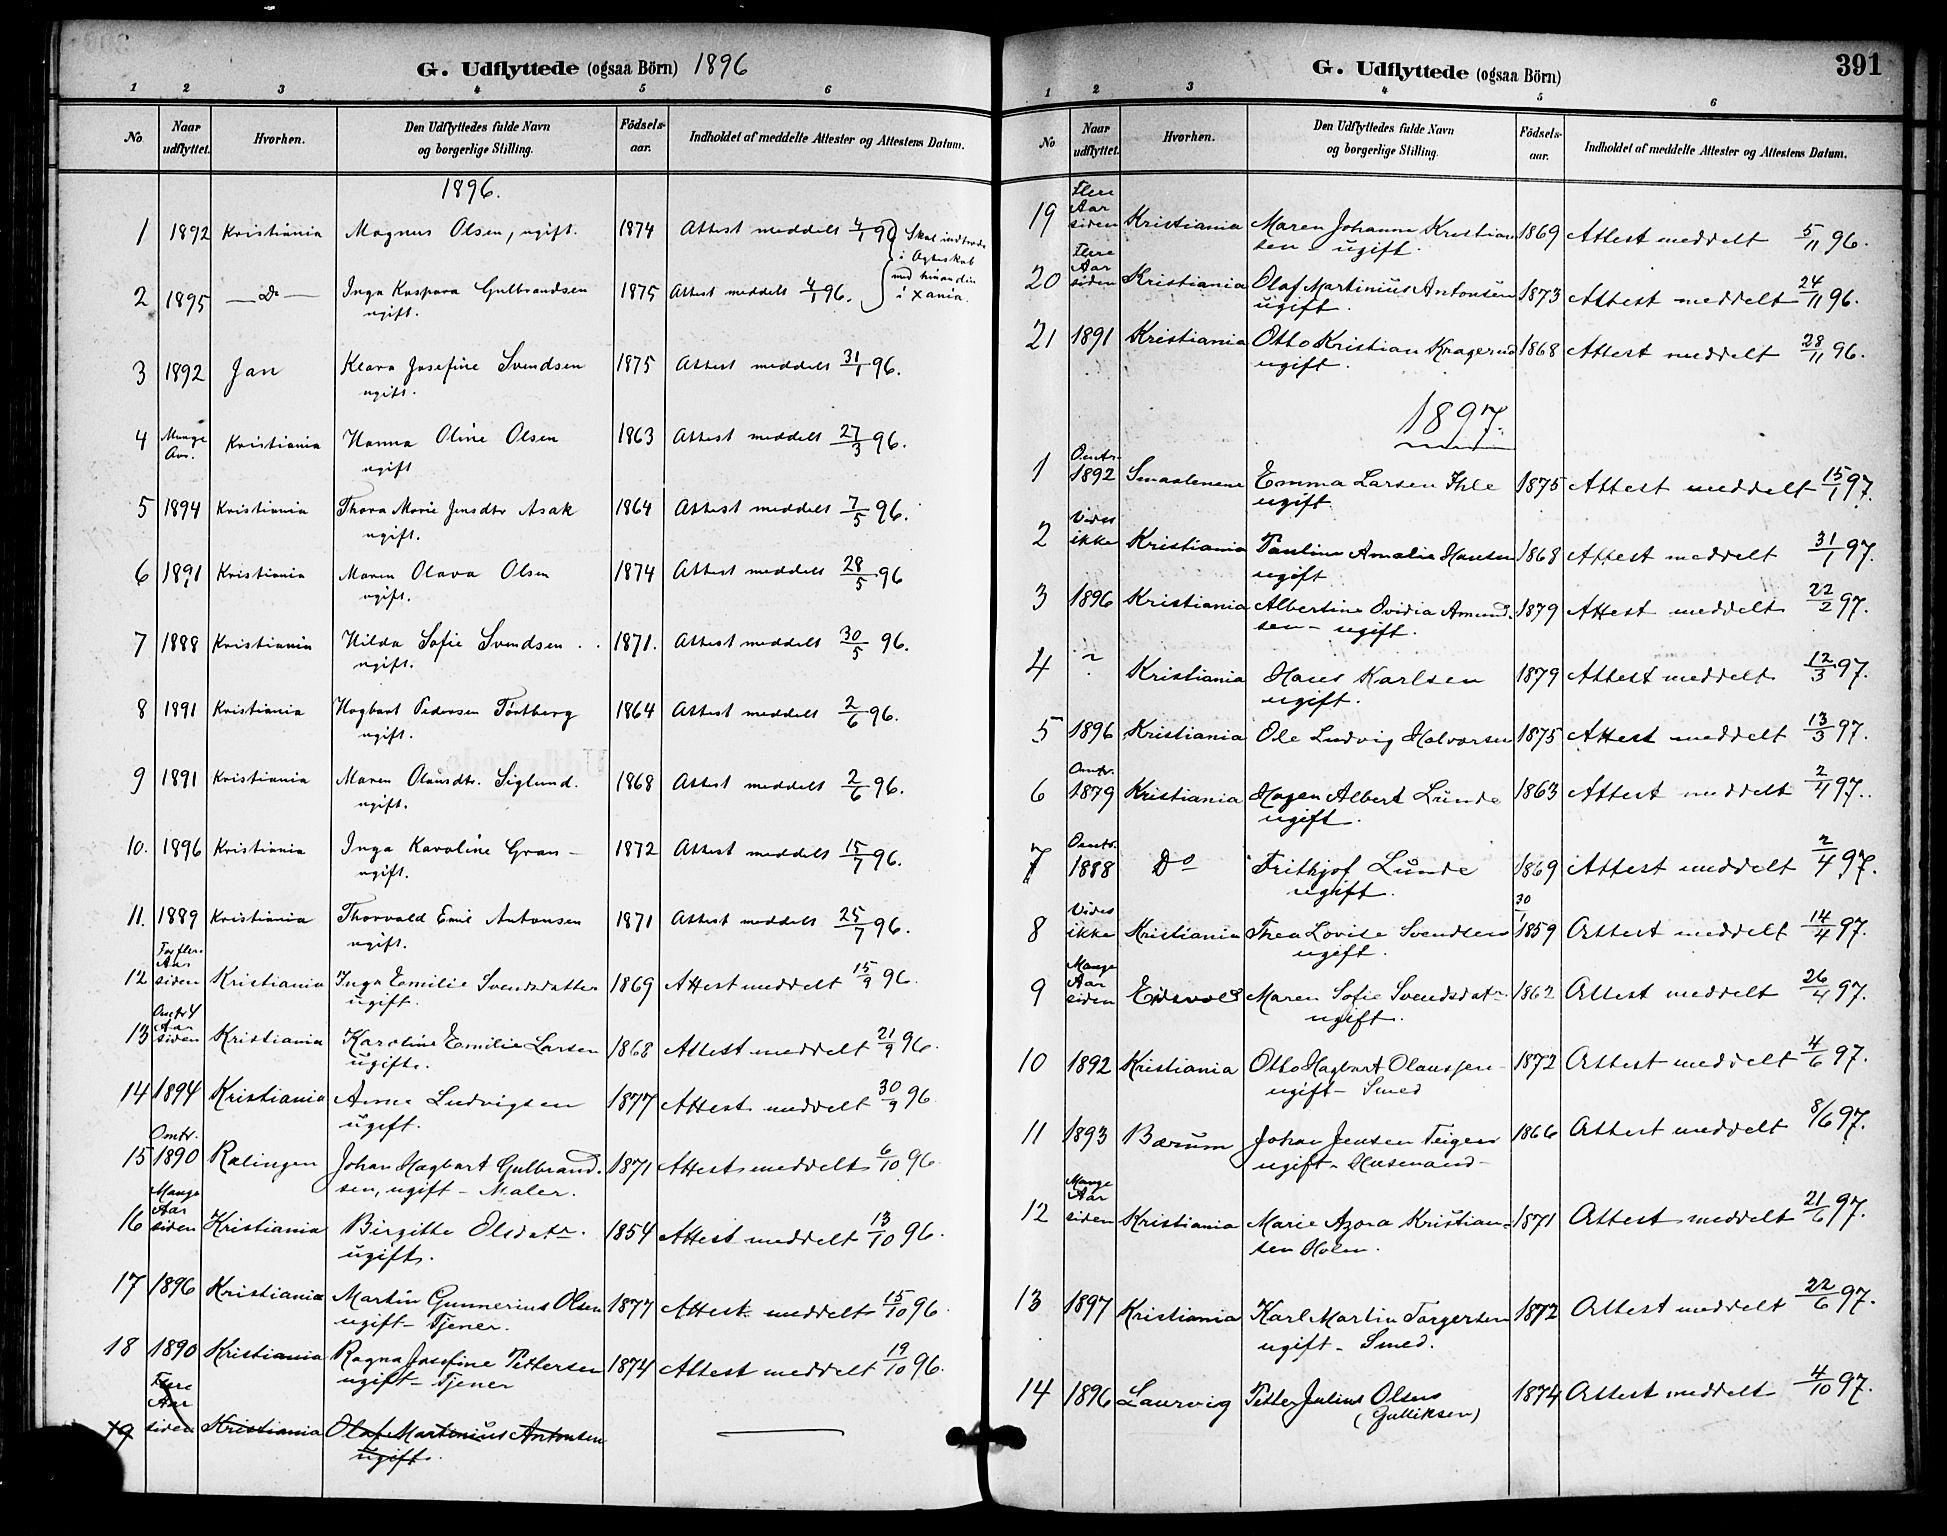 G. Udflyttede (ogsaa Börn) 1896
1 2 3 4 5 6
No Naar udflyttet. Hvorhen. Den Udflyttedes fulde Navn og borgerlige Stilling. Födsels-aar. Indholdet af meddelte Attester og Attestens Datum.
1896.
1 1892 Kristiania Magnus Olsen, ugift. 1874 Attest meddelt 4/1 96 Skal indtræde
i Ægteskab
med hinanden
i Xania.
2 1895 — Do — Inga Kaspara Gulbrandsen 1875 Attest meddelt 4/1 96.
ugift.
3 1892 Jan Klara Josefine Svendsen 1875 Attest meddelt 31/1 96.
ugift.
4 Mange Aar. Kristiania Hanna Oline Olsen 1863 Attest meddelt 27/3 96.
ugift
5 1894 Kristiania Thora Marie Jensdtr Asak 1864 Attest meddelt 7/5 96.
ugift.
6 1891 Kristiania Maren Olava Olsen 1874 Attest meddelt 28/5 96
ugift.
7 1888 Kristiania Hilda Sofie Svendsen 1871. Attest meddelt 30/5 96.
ugift.
8 1891 Kristiania Hagbart Pedersen Tortberg 1864 Attest meddelt 2/6 96.
ugift.
9 1891 Kristiania Maren Olausdtr. Siglund. 1868 Attest meddelt 2/6 96.
ugift.
10. 1896 Kristiania Inga Karoline Gran – 1872 Attest meddelt 15/7 96.
ugift.
11. 1889 Kristiania Thorvald Emil Antonsen 1871 Attest meddelt 25/7 96.
ugift.
12 Aar siden Kristiania Inga Emilie Svendsdatter 1869 Attest meddelt 15/9 96.
ugift.
13 Omtr 4 Aar siden Kristiania Karoline Emilie Larsen 1868 Attest meddelt 21/9 96.
ugift.
14 1894 Kristiania Anne Ludvigsen 1877 Attest meddelt 30/9 96
ugift.
15 Omtr. 1890 Rælingen Johan Hagbart Gulbrand- 1871 Attest meddelt 6/10 96.
sen, ugift – Maler.
16 Mange Aar siden Kristiania Birgitte Olsdatr. 1854 Attest meddelt 13/10 96.
ugift.
17 1896 Kristiania Martin Gunnerius Olsen 1877 Attest meddelt 15/10 96
ugift – Tjener.
18 1890 Kristiania Ragna Josefine Pettersen 1874 Attest meddelt 19/10 96.
ugift – Tjener
19 Flere Aar siden Kristiania Olaf Martinius Antonsen
ugift.
391
G. Udflyttede (ogsaa Börn)
1 2 3 4 5 6
No Naar udflyttet. Hvorhen. Den Udflyttedes fulde Navn og borgerlige Stilling. Födsels-aar. Indholdet af meddelte Attester og Attestens Datum.
19 Flere Aar siden Kristiania Maren Johanne Kristian 1869 Attest meddelt 5/11 96.
sen – ugift.
20 Flere Aar siden Kristiania Olaf Martinius Antonsen 1873 Attest meddelt 24/11 96.
ugift.
21 1891 Kristiania Otto Kristian Kragerud 1868 Attest meddelt 28/11 96.
ugift.
1897.
1 Omtr. 1892 Smaalenene Emma Larsen Ihle 1875 Attest meddelt 15/1 97.
ugift.
2 Vides ikke Kristiania Pauline Amalie Hansen 1868 Attest meddelt 31/1 97.
ugift
3 1896 Kristiania Albertine Ovidia Amund- 1879 Attest meddelt 22/2 97.
sen – ugift.
4 ? Kristiania Hans Karlsen 1879 Attest meddelt 12/3 97.
ugift.
5 1896 Kristiania Ole Ludvig Halvorsen 1875 Attest meddelt 13/3 97.
6 Omtr. 1879 Kristiania Hagen Albert Lunde 1863 Attest meddelt 2/4 97.
ugift.
7 Omtr. 1888 Do Frithjof Lunde 1869 Attest meddelt 2/4 97.
ugift.
8 Vides ikke Kristiania Thea Lovise Svendsen 30/1 1859 Attest meddelt 14/4 97.
ugift.
9 Mange Aar siden Eidsvold Maren Sofie Svendsdatr. 1862 Attest meddelt 26/4 97.
ugift.
10 1892 Kristiania Otto Hagbart Olaussen – 1872 Attest meddelt 4/6 97.
ugift – Smed
11 1893 Bærum Johan Jensen Teigen 1866 Attest meddelt 8/6 97.
ugift – Husmand –
12 Mange Aar siden Kristiania Marie Azora Kristian- 1871 Attest meddelt 21/6 97.
sen Holen.
13 1897 Kristiania Karl Martin Torgersen 1872 Attest meddelt 22/6 97.
ugift – Smed.
14 1896 Laurvig Petter Julius Olsen 1874 Attest meddelt 4/10 97.
(Gulliksen)